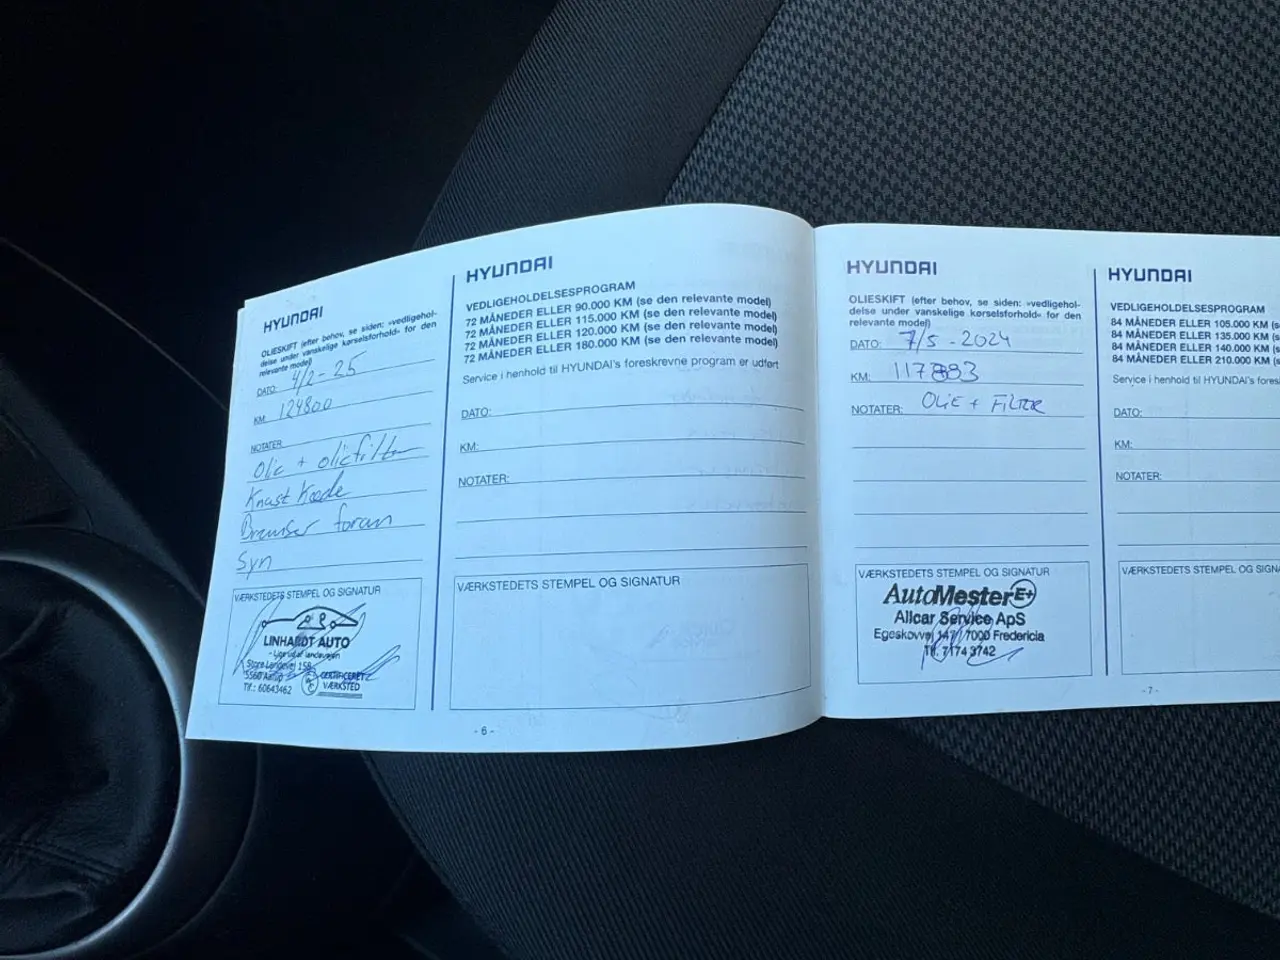 HYUNDAI
OLIESKIFT (efter behov, se siden: »vedligehol-
delse under vanskelige kørselsforhold« for den
relevante model)
DATO: 4/2-25
KM: 124800
NOTATER:
Olie + oliefilter
Knast Kæde
Bremser foran
Syn
VÆRKSTEDETS STEMPEL OG SIGNATUR
LINHARDT AUTO
- Lige ud af landevejen
Store Landevej 158
5560 Aarup
Tlf.: 60643462
CERTIFICERET
VÆRKSTED
HYUNDAI
VEDLIGEHOLDELSESPROGRAM
72 MÅNEDER ELLER 90.000 KM (se den relevante model)
72 MÅNEDER ELLER 115.000 KM (se den relevante model)
72 MÅNEDER ELLER 120.000 KM (se den relevante model)
72 MÅNEDER ELLER 180.000 KM (se den relevante model)
Service i henhold til HYUNDAI's foreskrevne program er udført
DATO:
KM:
NOTATER:
VÆRKSTEDETS STEMPEL OG SIGNATUR
- 6 -
HYUNDAI
OLIESKIFT (efter behov, se siden: »vedligehol-
delse under vanskelige kørselsforhold« for den
relevante model)
DATO: 7/5-2024
KM: 117883
NOTATER: OLIE + FILTER
VÆRKSTEDETS STEMPEL OG SIGNATUR
AutoMester E+
Allcar Service ApS
Egeskovvej 147 / 7000 Fredericia
Tlf. 7174 3742
- 7 -
HYUNDAI
VEDLIGEHOLDELSESPROGRAM
84 MÅNEDER ELLER 105.000 KM (s
84 MÅNEDER ELLER 135.000 KM (s
84 MÅNEDER ELLER 140.000 KM (s
84 MÅNEDER ELLER 210.000 KM (s
Service i henhold til HYUNDAI's fores
DATO:
KM:
NOTATER:
VÆRKSTEDETS STEMPEL OG SIGNA